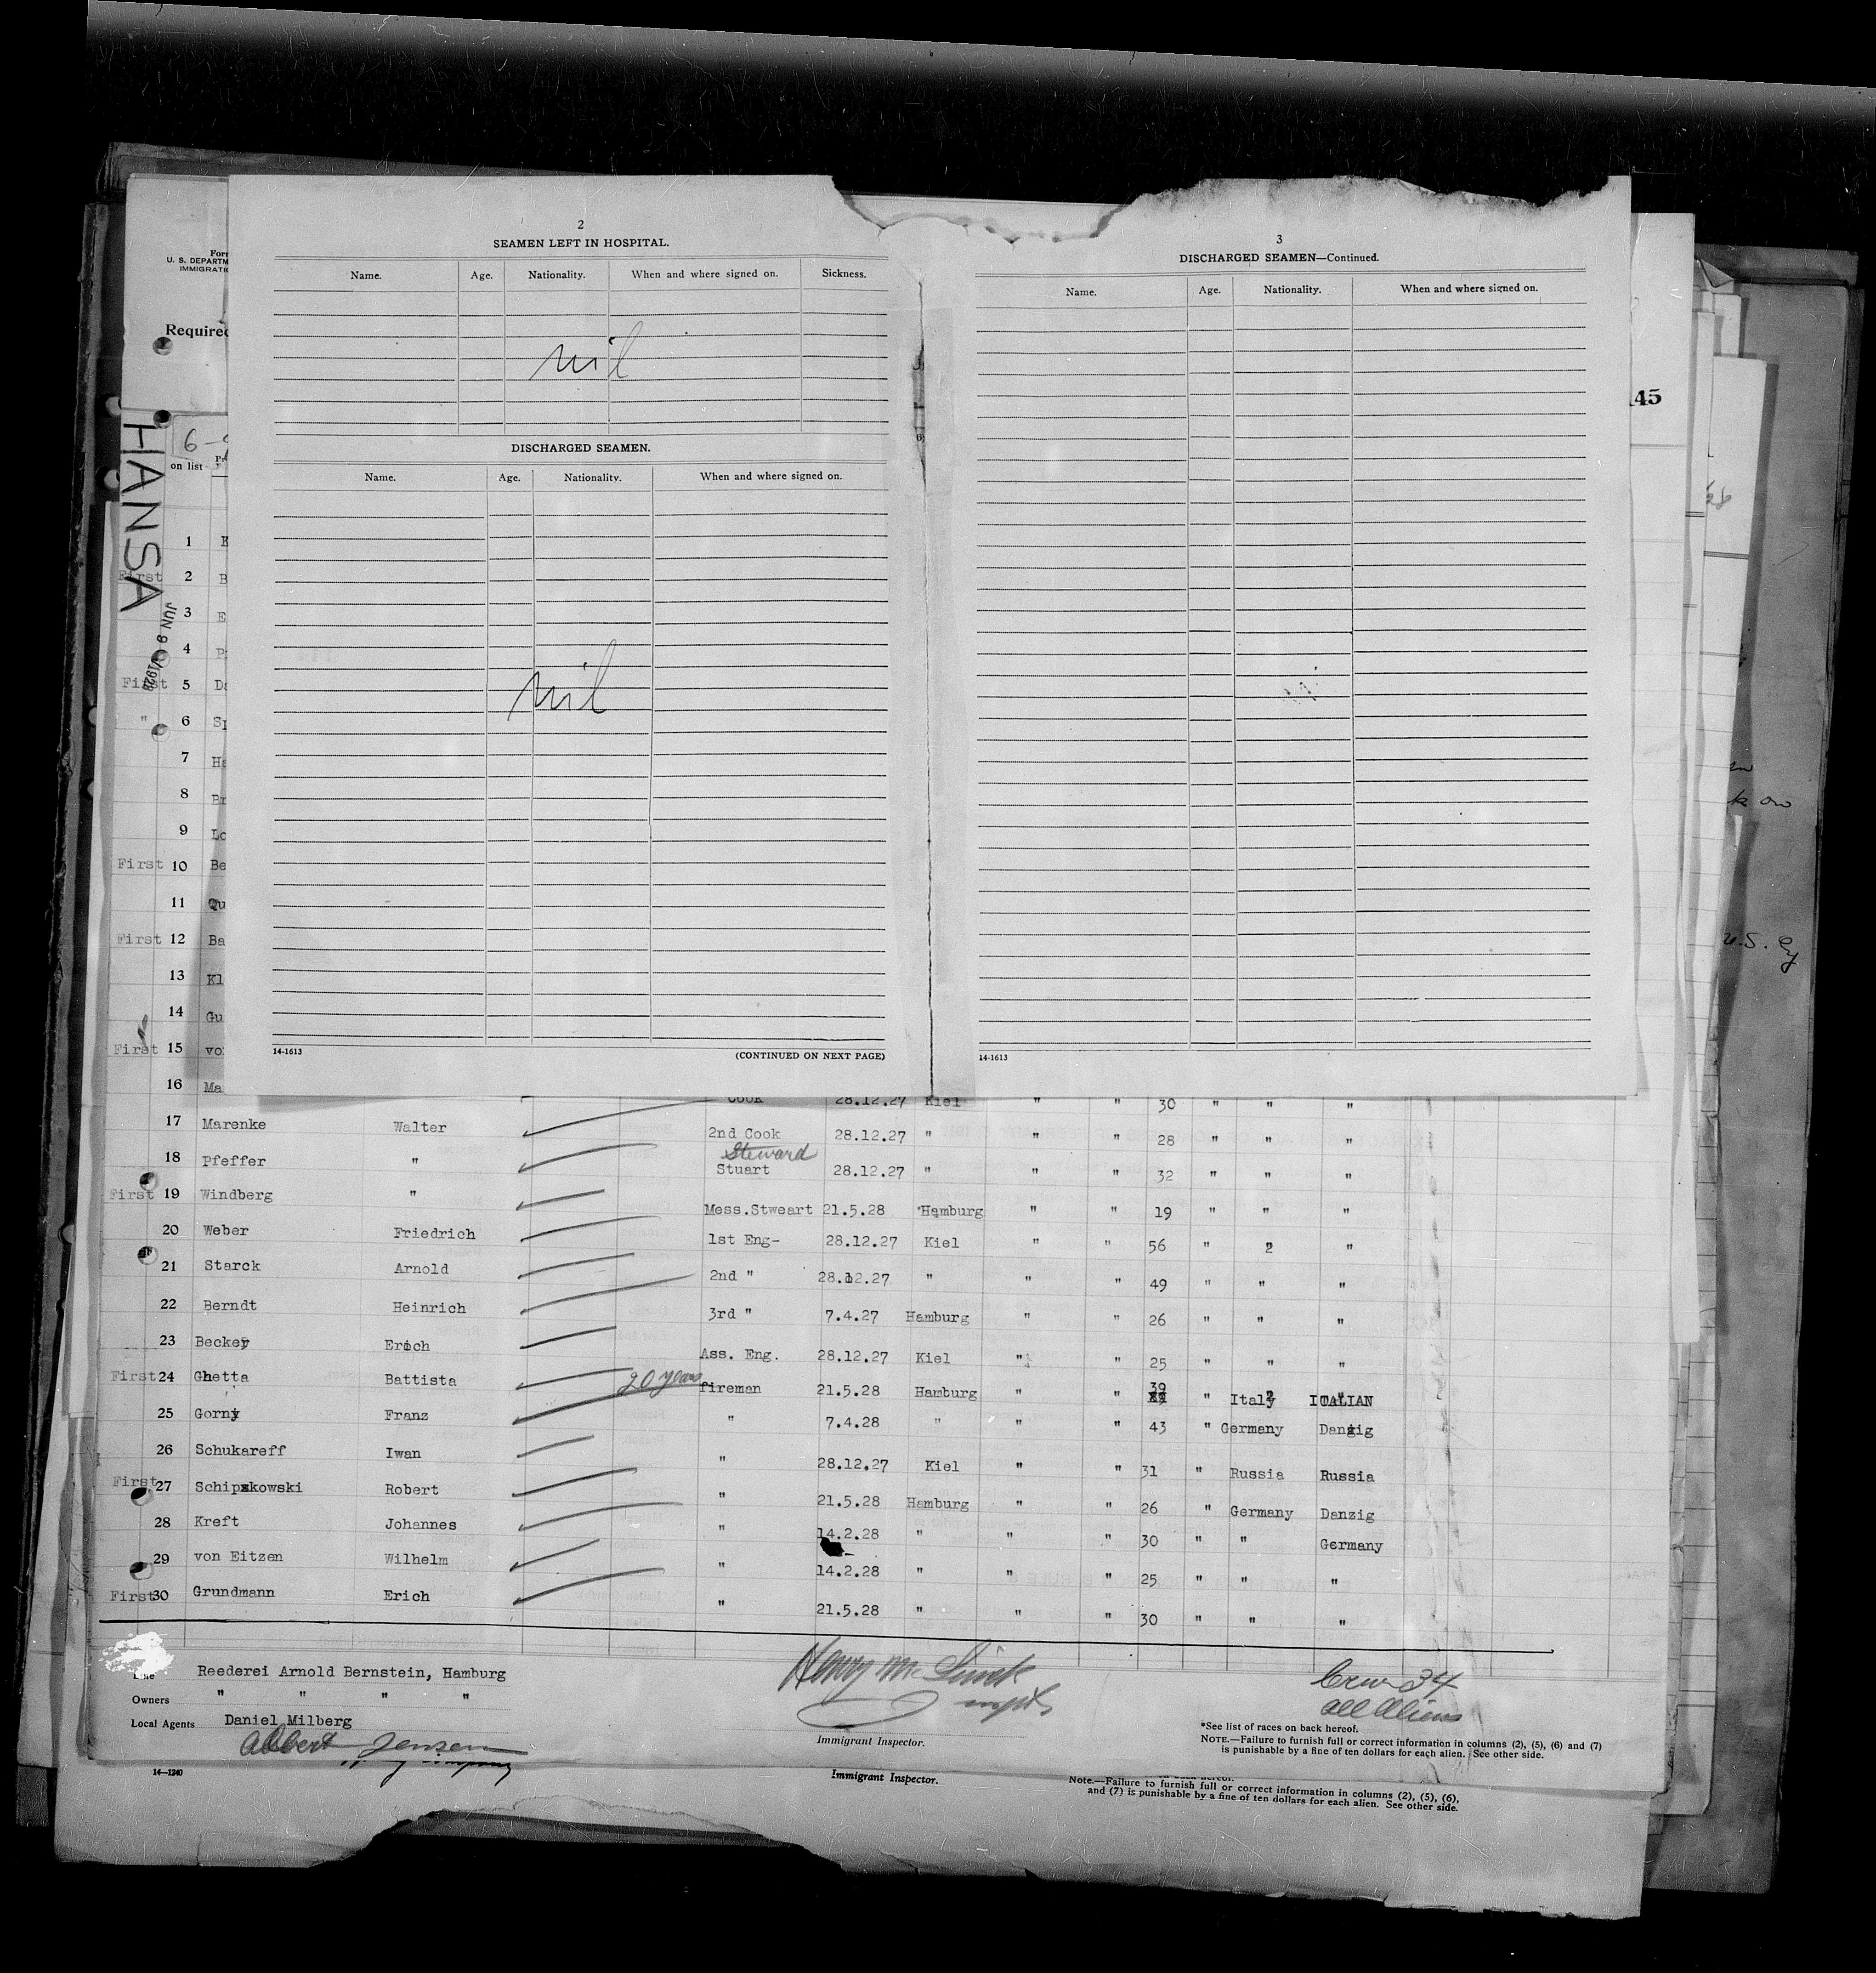 2
SEAMEN LEFT IN HOSPITAL.
Name. Age. Nationality. When and where signed on. Sickness.
nil
DISCHARGED SEAMEN.
Name. Age. Nationality. When and where signed on.
nil
14-1613 (CONTINUED ON NEXT PAGE)
3
DISCHARGED SEAMEN—Continued.
Name. Age. Nationality. When and where signed on.
14-1613
Form
U. S. DEPARTM
IMMIGRATIO
Required
45
HANSA
JUN 9 1928
6-
on list
1
First 2 B
3 E
4 P
First 5 Da
" 6 Sp
7 Ha
8 Br
9 Lo
First 10 Be
11 Qu
First 12 Ba
13 Kl
14 Gu
First 15 vo
16 Ma Cook 28.12.27 Kiel " " 30 " " "
17 Marenke Walter 2nd Cook 28.12.27 " " " 28 " " "
Steward
18 Pfeffer " Stuart 28.12.27 " " " 32 " " "
First 19 Windberg " Mess.Stweart 21.5.28 Hamburg " " 19 " " "
20 Weber Friedrich 1st Eng- 28.12.27 Kiel " " 56 " 2 "
21 Starck Arnold 2nd " 28.12.27 " " " 49 " " "
22 Berndt Heinrich 3rd " 7.4.27 Hamburg " " 26 " " "
23 Becker Erich Ass. Eng. 28.12.27 Kiel " " 25 " " "
First 24 Ghetta Battista 20 years fireman 21.5.28 Hamburg " " 39 " Italy ITALIAN
25 Gorny Franz " 7.4.28 " " " 43 " Germany Danzig
26 Schukareff Iwan " 28.12.27 Kiel " " 31 " Russia Russia
First 27 Schipxkowski Robert " 21.5.28 Hamburg " " 26 " Germany Danzig
28 Kreft Johannes " 14.2.28 " " " 30 " " Germany
29 von Eitzen Wilhelm " 14.2.28 " " " 25 " " "
First 30 Grundmann Erich " 21.5.28 " " " 30 " " "
Line Reederei Arnold Bernstein, Hamburg
Owners " " " "
Local Agents Daniel Milberg
Albert Jensen
Immigrant Inspector.
Crew 34
all Aliens
*See list of races on back hereof.
NOTE.—Failure to furnish full or correct information in columns (2), (5), (6) and (7)
is punishable by a fine of ten dollars for each alien. See other side.
14—1240
Immigrant Inspector.
Note.—Failure to furnish full or correct information in columns (2), (5), (6),
and (7) is punishable by a fine of ten dollars for each alien. See other side.
U.S.